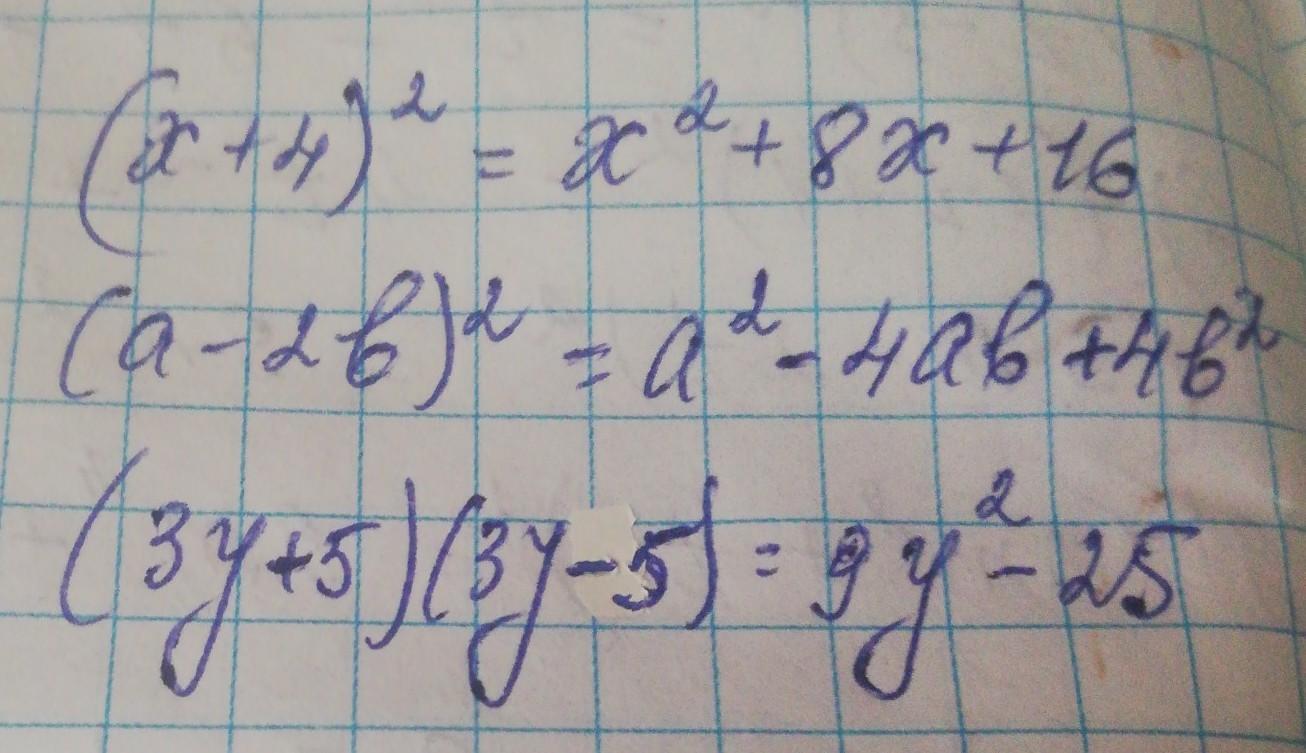 (x+4)² = x²+8x+16
(a-2b)² = a²-4ab+4b²
(3y+5)(3y-5) = 9y²-25